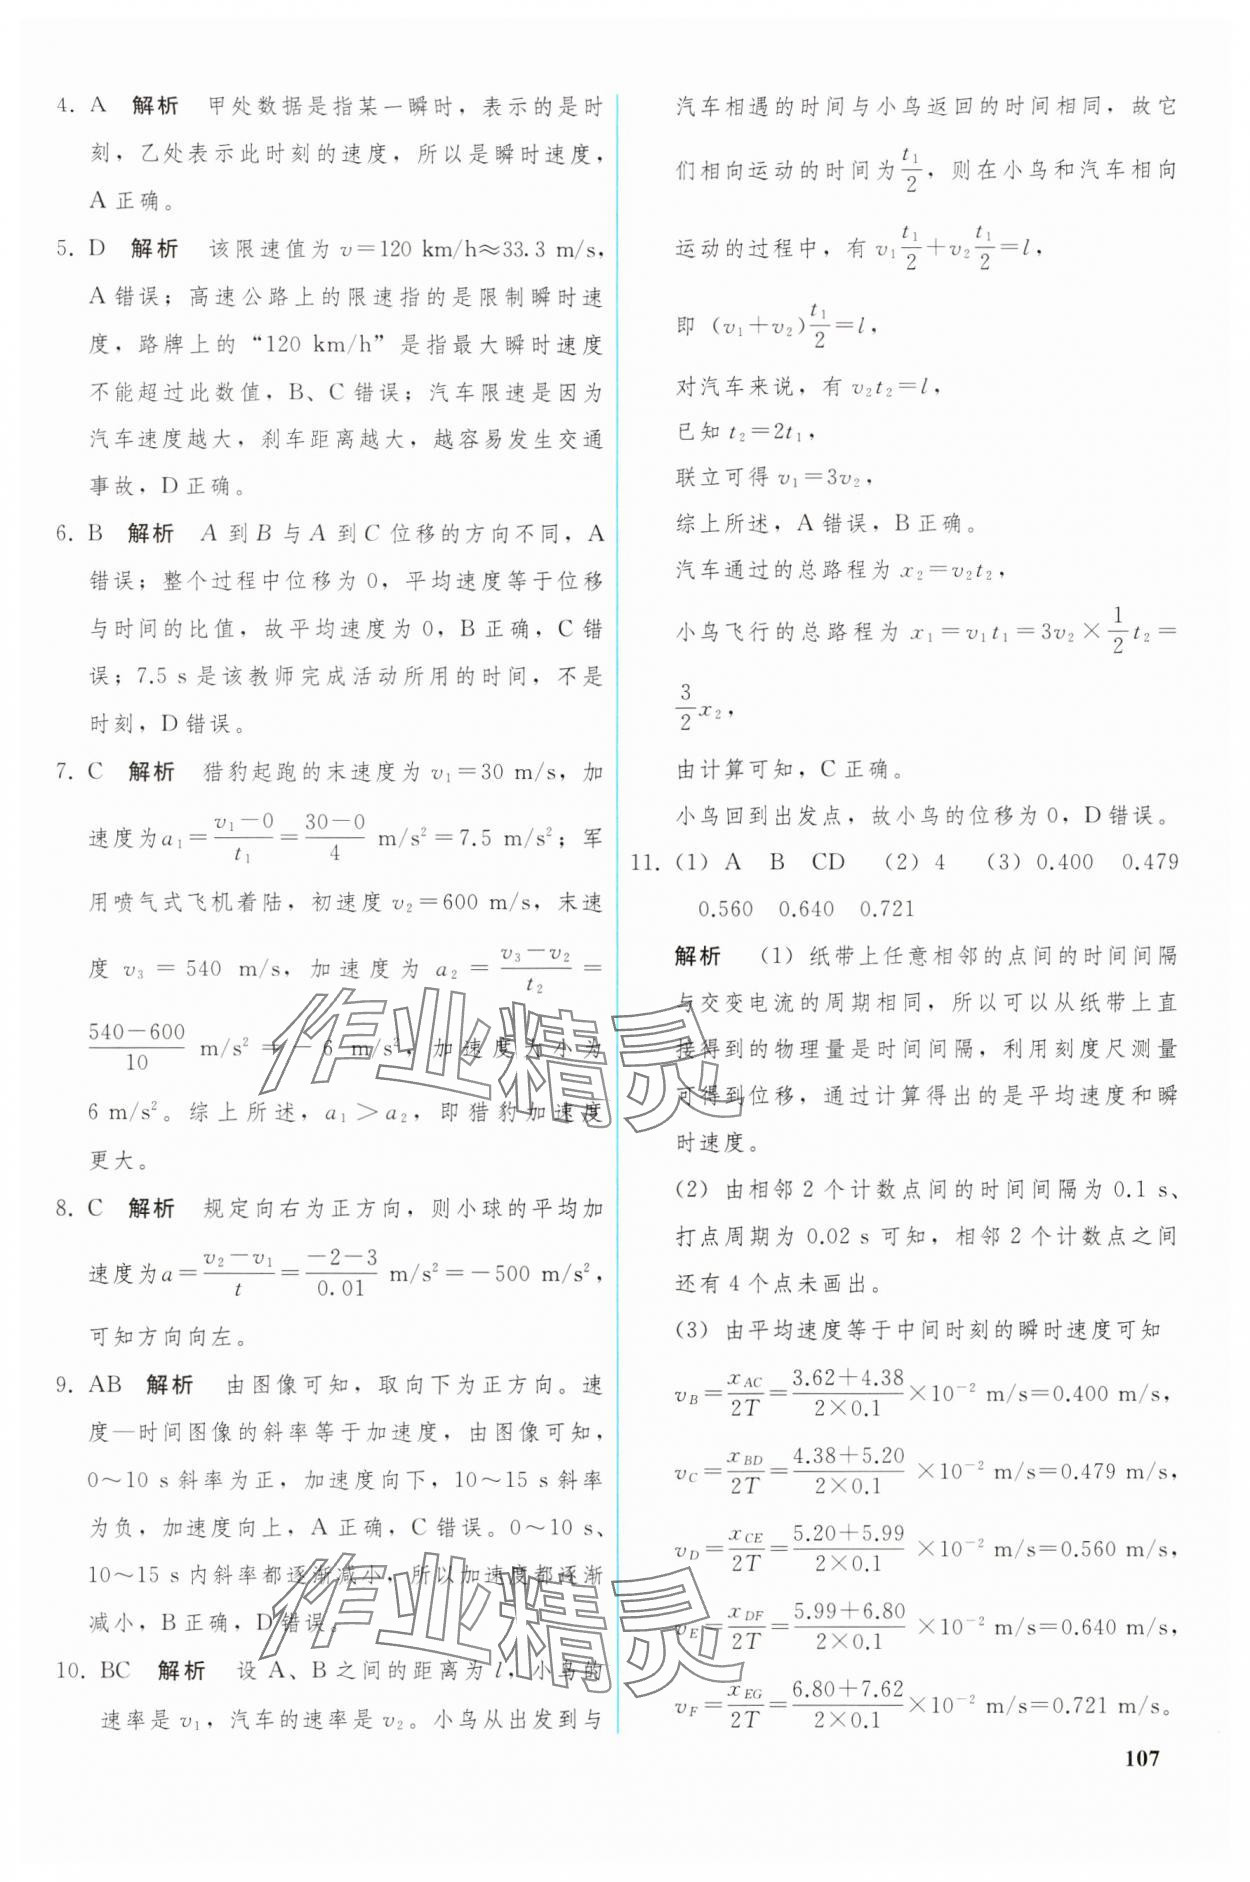 4. A 解析 甲处数据是指某一瞬时，表示的是时
刻，乙处表示此时刻的速度，所以是瞬时速度，
A 正确。
5. D 解析 该限速值为 v=120 km/h≈33.3 m/s，
A 错误；高速公路上的限速指的是限制瞬时速
度，路牌上的“120 km/h”是指最大瞬时速度
不能超过此数值，B、C 错误；汽车限速是因为
汽车速度越大，刹车距离越大，越容易发生交通
事故，D 正确。
6. B 解析 A 到 B 与 A 到 C 位移的方向不同，A
错误；整个过程中位移为 0，平均速度等于位移
与时间的比值，故平均速度为 0，B 正确，C 错
误；7.5 s 是该教师完成活动所用的时间，不是
时刻，D 错误。
7. C 解析 猎豹起跑的末速度为 v₁=30 m/s，加
速度为 a₁=(v₁-0)/t₁=(30-0)/4 m/s²=7.5 m/s²；军
用喷气式飞机着陆，初速度 v₂=600 m/s，末速
度 v₃ = 540 m/s，加速度为 a₂ = (v₃-v₂)/t₂ =
(540-600)/10 m/s² = -6 m/s²，加速度大小为
6 m/s²。综上所述，a₁>a₂，即猎豹加速度
更大。
8. C 解析 规定向右为正方向，则小球的平均加
速度为a=(v₂-v₁)/t=(-2-3)/0.01 m/s²=-500 m/s²，
可知方向向左。
9. AB 解析 由图像可知，取向下为正方向。速
度—时间图像的斜率等于加速度，由图像可知，
0～10 s 斜率为正，加速度向下，10～15 s 斜率
为负，加速度向上，A 正确，C 错误。0～10 s、
10～15 s 内斜率都逐渐减小，所以加速度都逐渐
减小，B 正确，D 错误。
10. BC 解析 设 A、B 之间的距离为 l，小鸟的
速率是 v₁，汽车的速率是 v₂。小鸟从出发到与
汽车相遇的时间与小鸟返回的时间相同，故它
们相向运动的时间为 t₁/2，则在小鸟和汽车相向
运动的过程中，有 v₁ t₁/2+v₂ t₁/2=l，
即 (v₁+v₂) t₁/2=l，
对汽车来说，有 v₂t₂=l，
已知 t₂=2t₁，
联立可得 v₁=3v₂，
综上所述，A 错误，B 正确。
汽车通过的总路程为 x₂=v₂t₂，
小鸟飞行的总路程为 x₁=v₁t₁=3v₂×1/2 t₂=
3/2 x₂，
由计算可知，C 正确。
小鸟回到出发点，故小鸟的位移为 0，D 错误。
11. (1) A B CD (2) 4 (3) 0.400 0.479
0.560 0.640 0.721
解析 (1) 纸带上任意相邻的点间的时间间隔
与交变电流的周期相同，所以可以从纸带上直
接得到的物理量是时间间隔，利用刻度尺测量
可得到位移，通过计算得出的是平均速度和瞬
时速度。
(2) 由相邻 2 个计数点间的时间间隔为 0.1 s、
打点周期为 0.02 s 可知，相邻 2 个计数点之间
还有 4 个点未画出。
(3) 由平均速度等于中间时刻的瞬时速度可知
v_B=x_AC/2T=(3.62+4.38)/(2×0.1)×10⁻² m/s=0.400 m/s，
v_C=x_BD/2T=(4.38+5.20)/(2×0.1)×10⁻² m/s=0.479 m/s，
v_D=x_CE/2T=(5.20+5.99)/(2×0.1)×10⁻² m/s=0.560 m/s，
v_E=x_DF/2T=(5.99+6.80)/(2×0.1)×10⁻² m/s=0.640 m/s，
v_F=x_EG/2T=(6.80+7.62)/(2×0.1)×10⁻² m/s=0.721 m/s。
作业精灵
作业精灵
107